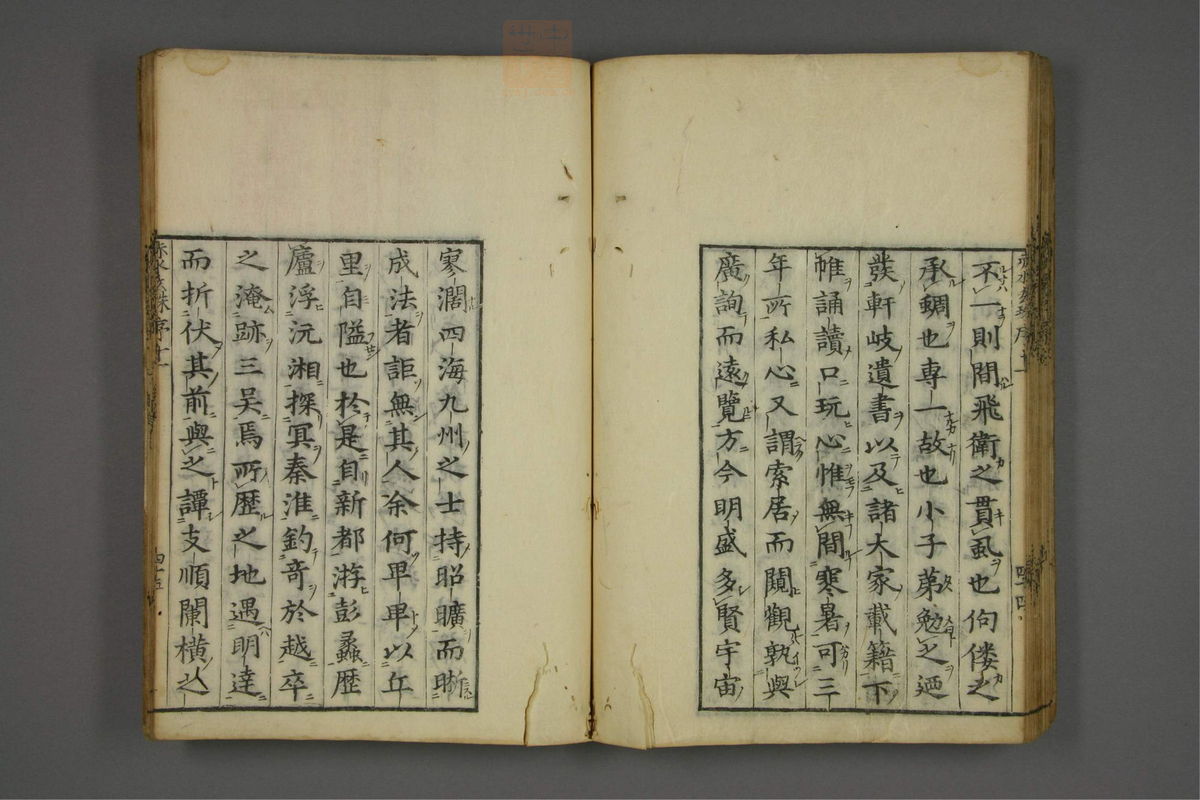 不一則間飛衛之貫虱也佝僂之
承蜩也専一故也小子弟勉之迺
發軒岐遺書以及諸大家載籍下
帷誦讀口玩心惟無間寒暑可三
年所私心又謂索居而闚觀孰與
廣詢而遠覽方今明盛多賢宇宙
寥濶四海九州之士持昭曠而晰
成法者詎無其人余何卑卑以丘
里自隘也於是自新都游彭蠡歴
廬浮沅湘探冥秦淮釣竒於越卒
之淹跡三吳焉所歴之地遇明達
而折伏其前與之譚支順闌橫以
序十一
四十五